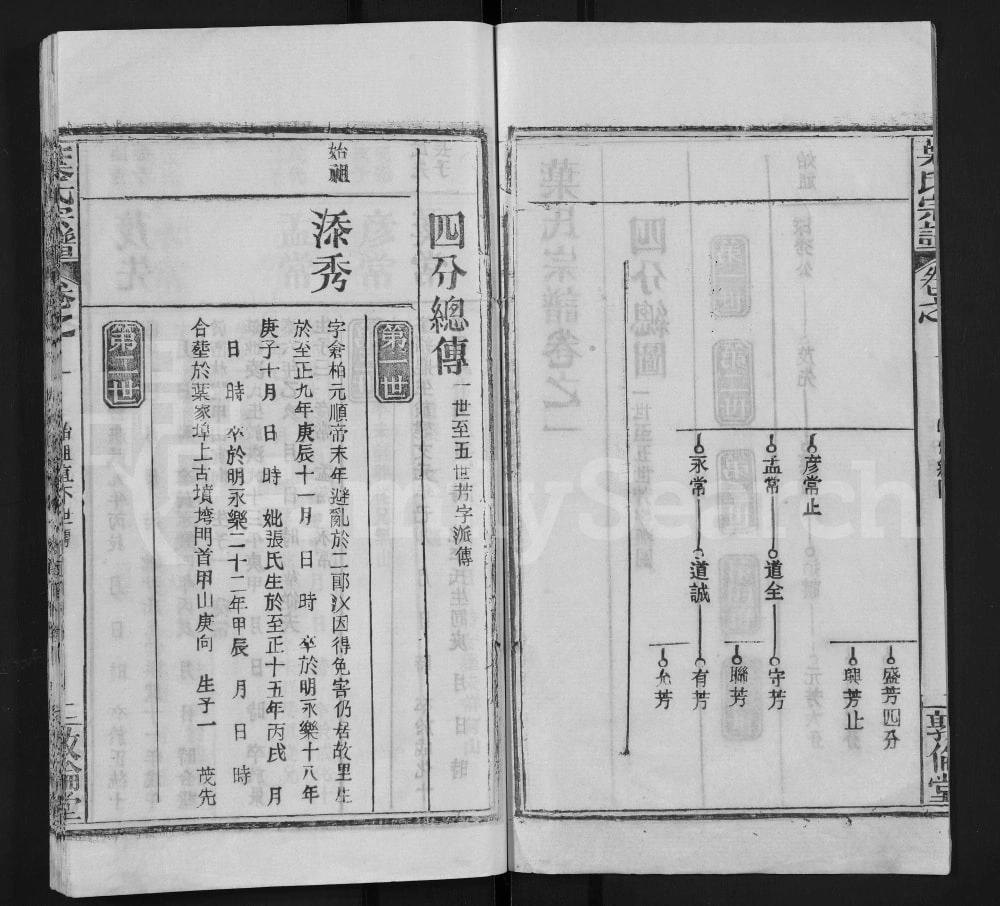 葉氏宗譜
卷之一
敦倫堂
盛芳四分
興芳止
彥常止
孟常
道全
守芳
聯芳
永常
道誠
有芳
允芳
四分總傳
一世至五世芳字派傳
第一世
始祖
添秀
字倉柏元順帝末年避亂於二郎汊因得免害仍居故里生
於至正九年庚辰十一月 日 時 卒於明永樂十八年
庚子十月 日 時 妣張氏生於至正十五年丙戌 月
日 時 卒於明永樂二十二年甲辰 月 日 時
合塟於葉家埠上古墳塆門首甲山庚向 生子一 茂先
第二世
葉氏宗譜
卷之一
二
敦倫堂
FamilySearch